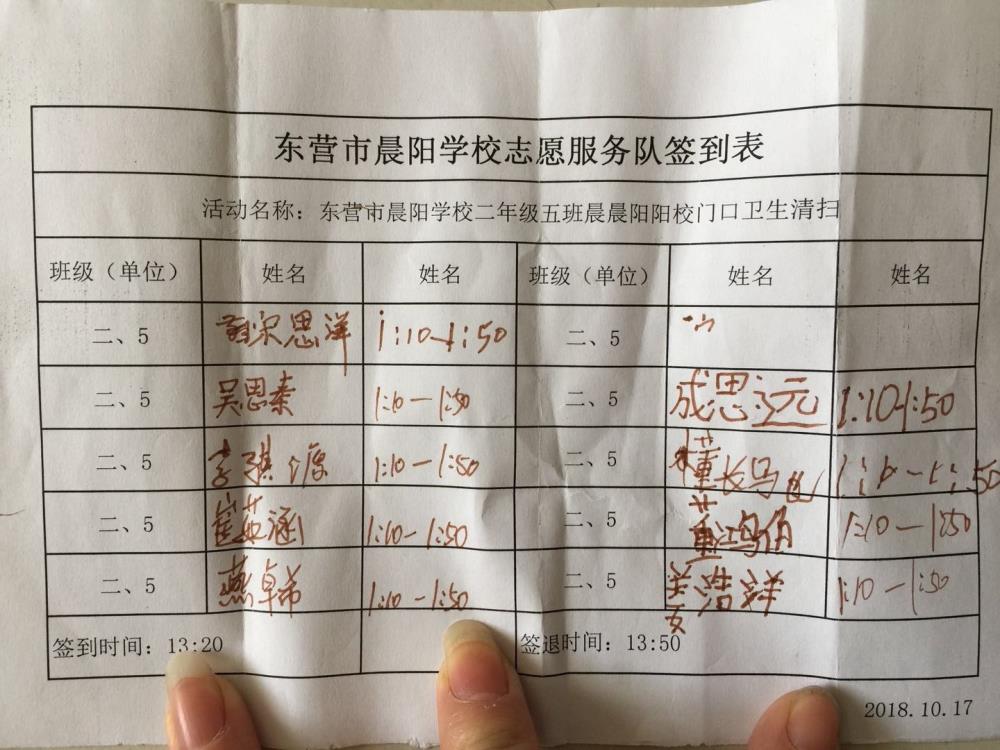 东营市晨阳学校志愿服务队签到表
活动名称：东营市晨阳学校二年级五班晨晨阳阳校门口卫生清扫
班级（单位） 姓名 姓名 班级（单位） 姓名 姓名
二、5 宋思洋 1:10-1:50 二、5
二、5 吴思秦 1:10-1:50 二、5 成思远 1:10-1:50
二、5 李 源 1:10-1:50 二、5
二、5 崔茹涵 1:10-1:50 二、5 1:10-1:50
二、5 燕卓希 1:10-1:50 二、5 1:10-1:50
签到时间：13:20 签退时间：13:50
2018.10.17